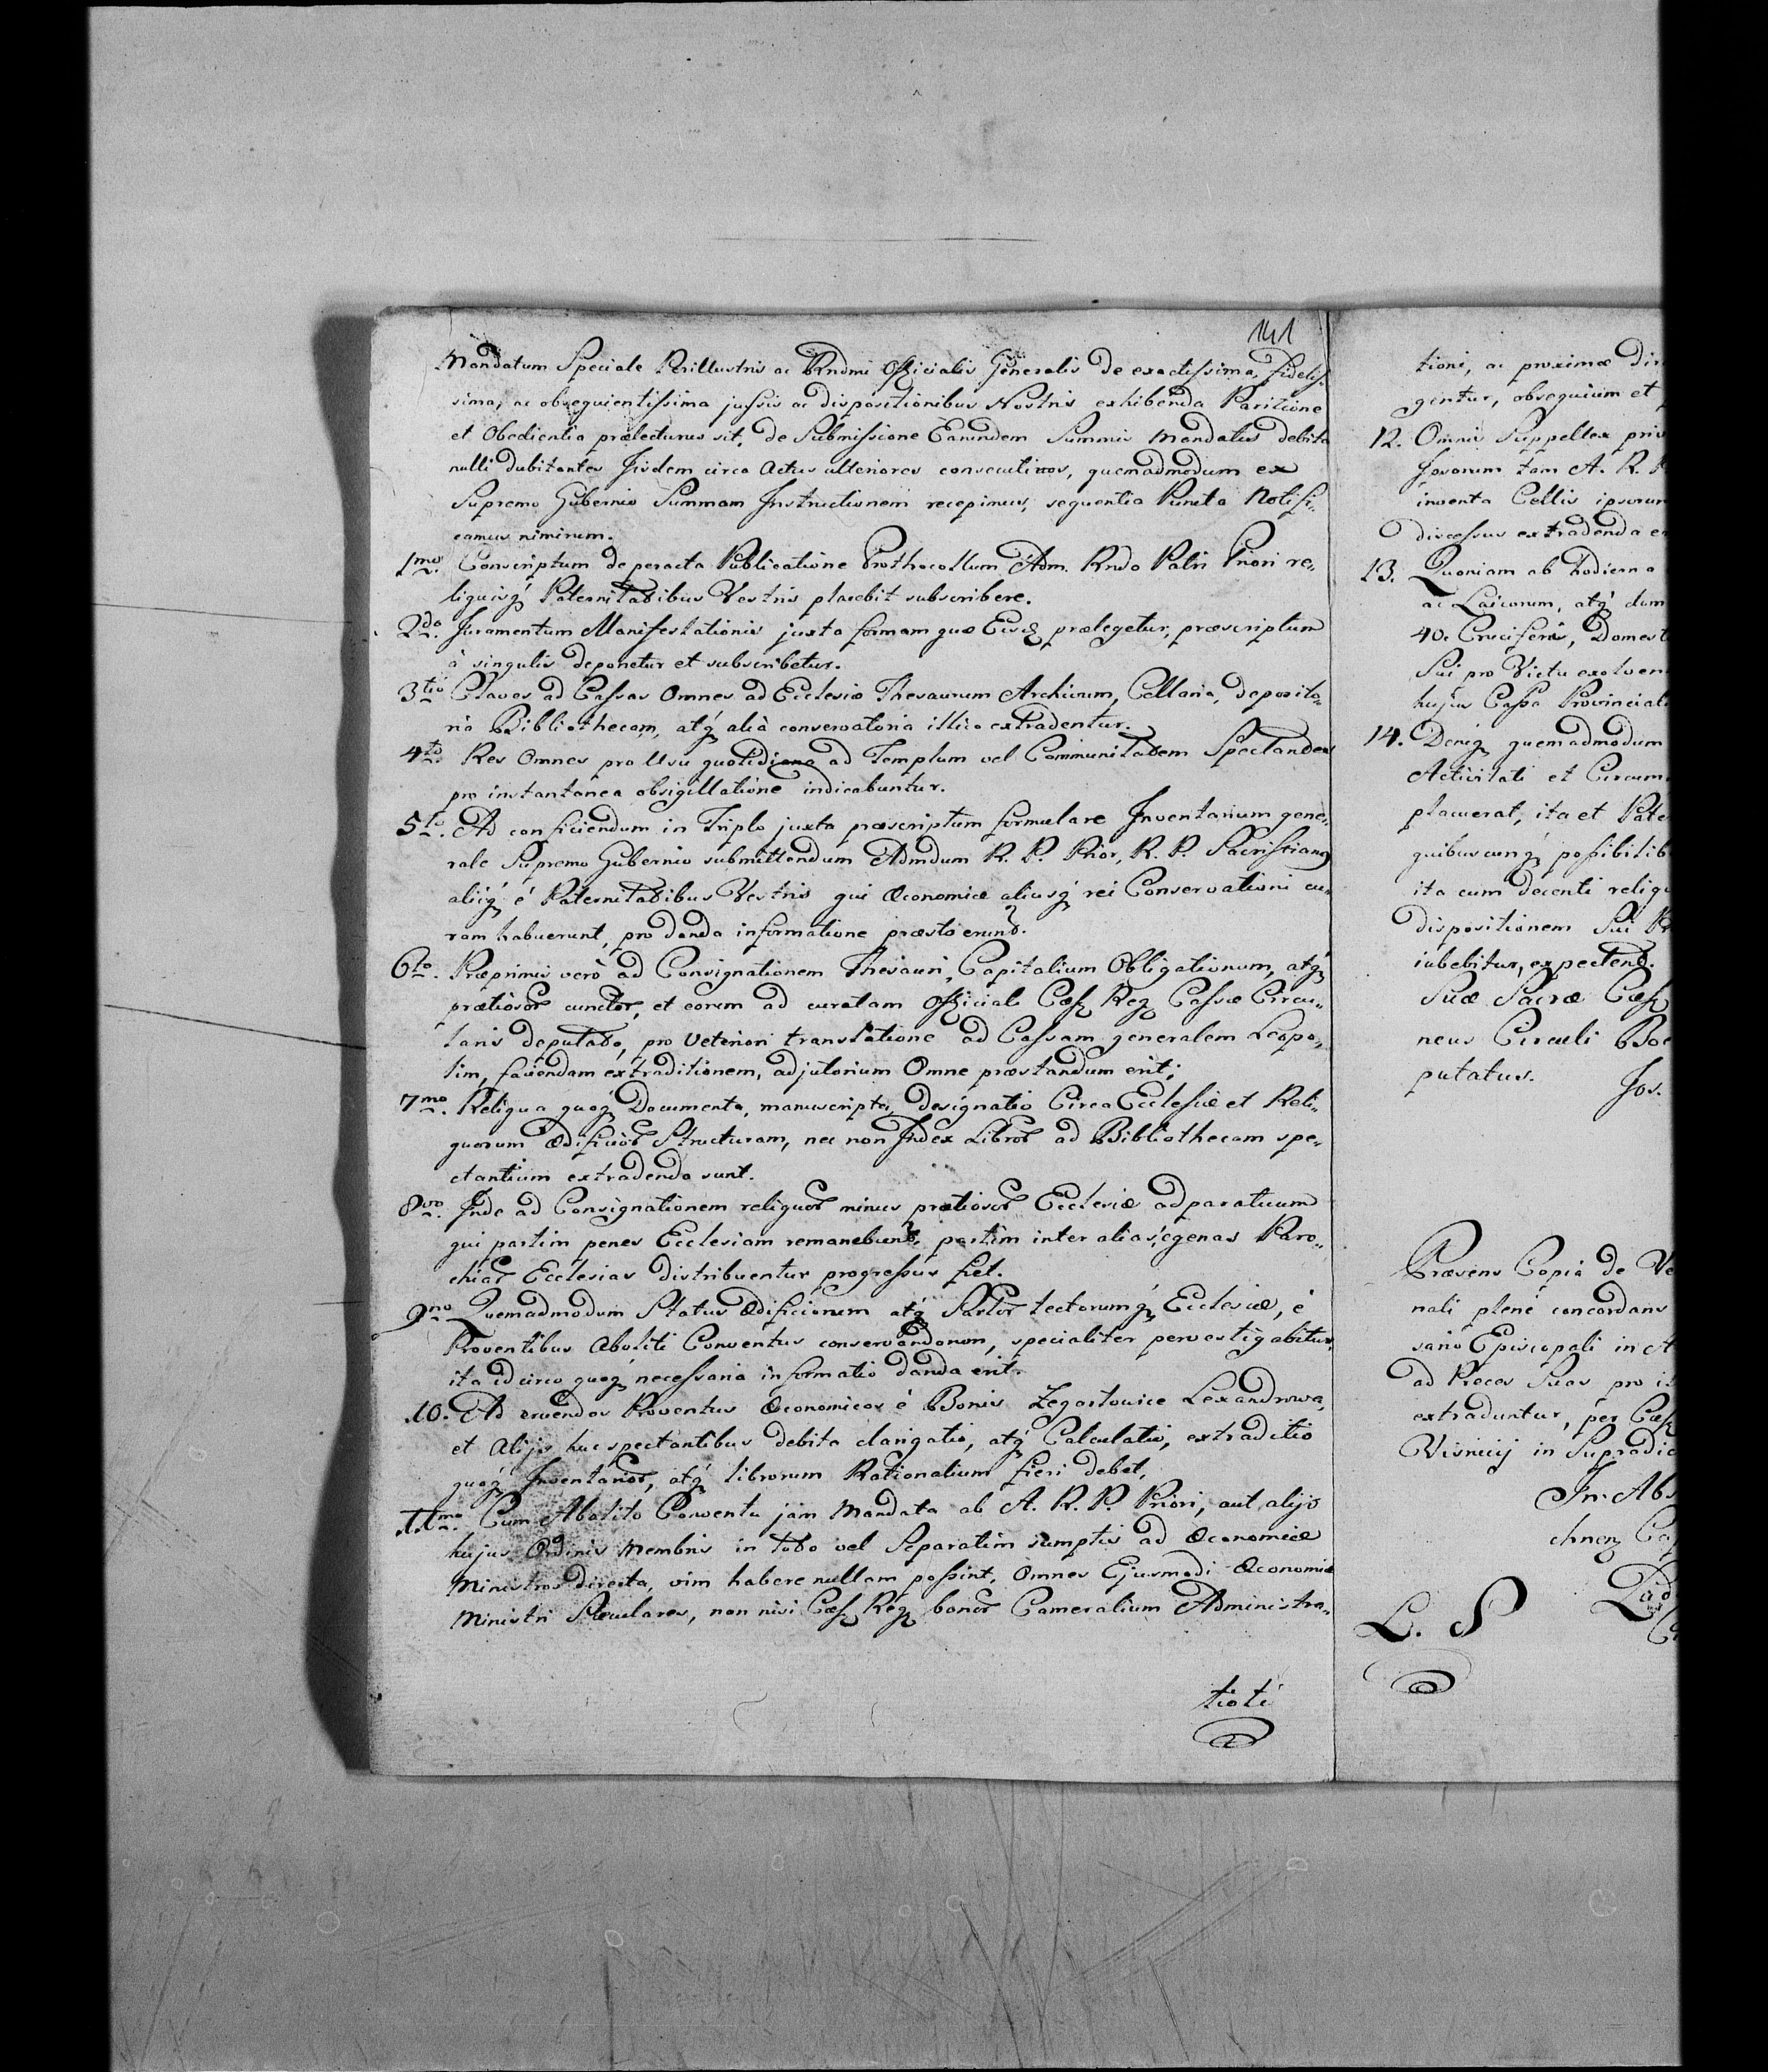 141
Mandatum Speciale Perillustris ac Rndmi Officialis Generalis de exactissima, fidelis-
sima, ac obsequientissima jussis ac dispositionibus Nostris exhibenda Paritione
et Obedientia prælecturus sit, de Submissione Earundem Summis Mandatis debita
nulli dubitantes Iisdem circa Actus ulteriores consecutivos, quemadmodum ex
Supremo Gubernio Summam Instructionem recepimus, sequentia Puncta Notifi-
camus nimirum.
1mo. Conscriptum de peracta Publicatione Prothocollum Adm. Rndo Patri Priori re-
liquisq́ Paternitatibus Vestris placebit subscribere.
2do. Juramentum Manifestationis juxta formam quæ Eisq prælegetur, præscriptum
à singulis deponetur et subscribetur.
3tio Claves ad Cassas Omnes ad Ecclesiæ Thesaurum Archivum, Cellaria, deposito-
ria Bibliothecam, atq́ alia conservatoria illico extradentur.
4to. Res Omnes pro Usu quotidiano ad Templum vel Communitatem Spectandes
pro instantanea obsigillatione indicabuntur.
5to. Ad conficiendum in Triplo juxta præscriptum formulare Inventarium gene-
rale Supremo Gubernio submittendum Admdum R. P. Prior, R. P. Sacristianq
aliiq́ é Paternitatibus Vestris qui Œconomiæ aliusq́ rei Conservationi cu-
ram habuerunt, pro danda informatione præsto erunt.
6to. Præprimis verò ad Consignationem Thesauri, Capitalium Obligationum, atq́
prætiosor cunctor, et eorum ad curatam Officiali Cæs Reg Cassæ Circu-
laris deputato, pro Veteriori translatione ad Cassam generalem Leopo-
lim, faciendam extraditionem, adjutorium Omne præstandum erit;
7mo. Reliqua quoq́ Documenta, manuscripta, designatio Circa Ecclesiæ et Reli-
quorum Ædificiór Structuram, nec non Index Libror ad Bibliothecam spe-
ctantium extradenda sunt.
8vo. Inde ad Consignationem reliquor minus prætiosor Ecclesiæ adparatuum
qui partim penes Ecclesiam remanebunt, partim inter alias egenas Paro-
chiar Ecclesias distribuentur progressus fiet.
9no Quemadmodum Status Ædificiorum atq́ tectorumq́ Ecclesiæ, é
Proventibus Aboliti Conventus conservandorum, specialiter pervestigabitur,
ita id circo quoq́ necessaria informatio danda erit.
.10. Ad eruendos Proventus Œconomicos é Bonis Zegartowice Lexandrowa,
et Alijs huc spectantibus debita clarigatio, atq́ Calculatio, extraditio
quoq́ Inventarior, atq́ librorum Rationalium fieri debet,
.11mo. Cum Abolito Conventu jam Mandata ab A. R. P. Priori, aut alijs
hujus Ordinis Membris in toto vel Separatim sumptis ad Œconomiæ
Ministros directa, vim habere nullam possint, Omnes Ejusmodi Œconomiæ
Ministri Sæculares, non nisi Cæs Reg bonor Cameralium Administra-
tioti
tioni, ac proximæ
gentur, obsequium et
12. Omnis Suppellex
Ipsorum tam A. R.
inventa Cellis ipsorum
discessus extradenda
13. Quoniam ab hodierna
ac Laicorum, atq́ dum
40. Cruciferis,
Sui pro Victu
hujus Cassa
14. Deniq quemadmodum
Activitati et
placuerat, ita et
quibuscunq́
ita cum decenti
dispositionem Sui
iubebitur, expectent.
Suæ Sacræ Cæs
neus Circuli
putatus. Jos.
Præsens Copia de
nali plené concordans
sario Episcopali in
ad Preces Suas pro
extraduntur, per
Visnicij in
In
L. S